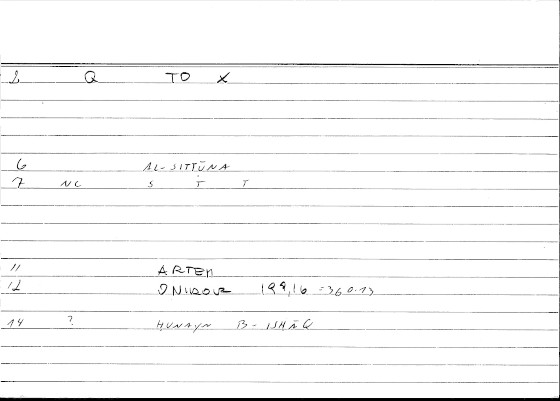 Q TO X
6 AL-SITTŪNA
7 NC S T T
11 ARTEM
12 199,16 = 360.13
14 ? HUNAYN B- ISHĀQ